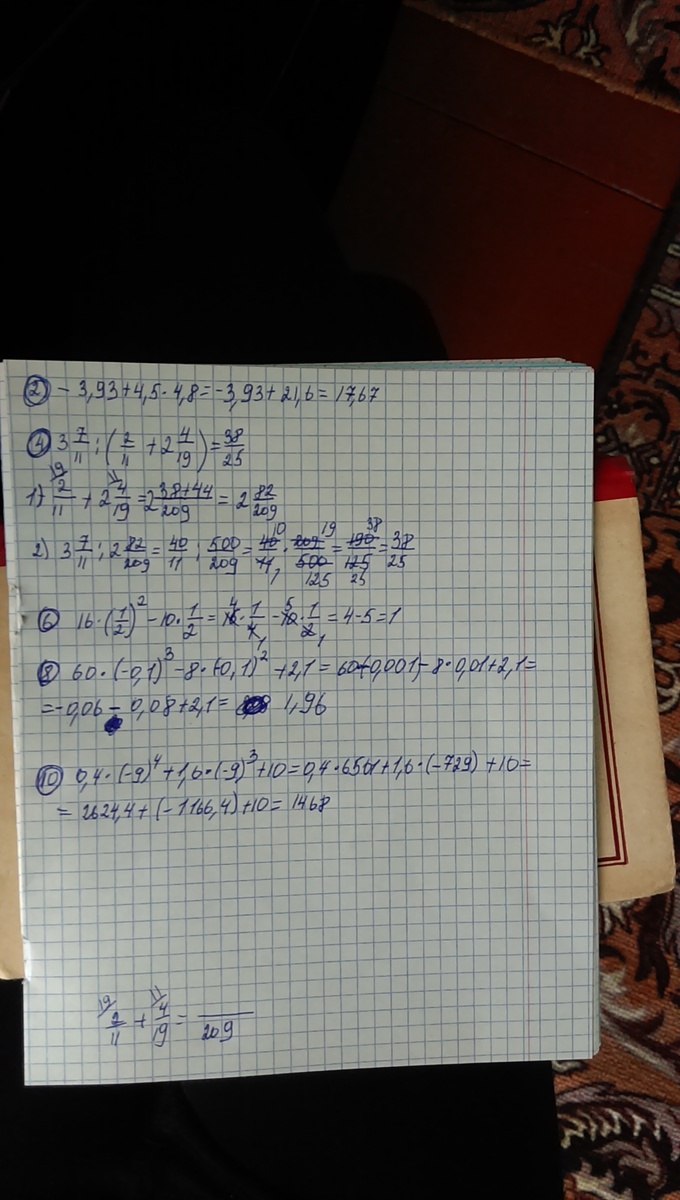 ② - 3,93+4,5·4,8=-3,93+21,6=17,67
④ 3 7/11 : (2/11 + 2 4/19) = 38/25
1) 19/ 2/11 + 2 11/ 4/19 = 2 38+44/209 = 2 82/209
2) 3 7/11 : 2 82/209 = 40/11 : 500/209 = 40/11 · 209/500 = 190/125 = 38/25
10 1 19 125 38 25
⑥ 16·(1/2)² - 10·1/2 = 16·1/4 - 10·1/2 = 4-5=1
4 1 5 1
⑧ 60·(-0,1)³ - 8·(-0,1)² + 2,1 = 60·(-0,001) - 8·0,01+2,1=
=-0,06 - 0,08+2,1= 1,96
⑩ 0,4·(-9)⁴+1,6·(-9)³+10=0,4·6561+1,6·(-729)+10=
= 2624,4+(-1166,4)+10= 1468
19/ 2/11 + 11/ 4/19 = /209